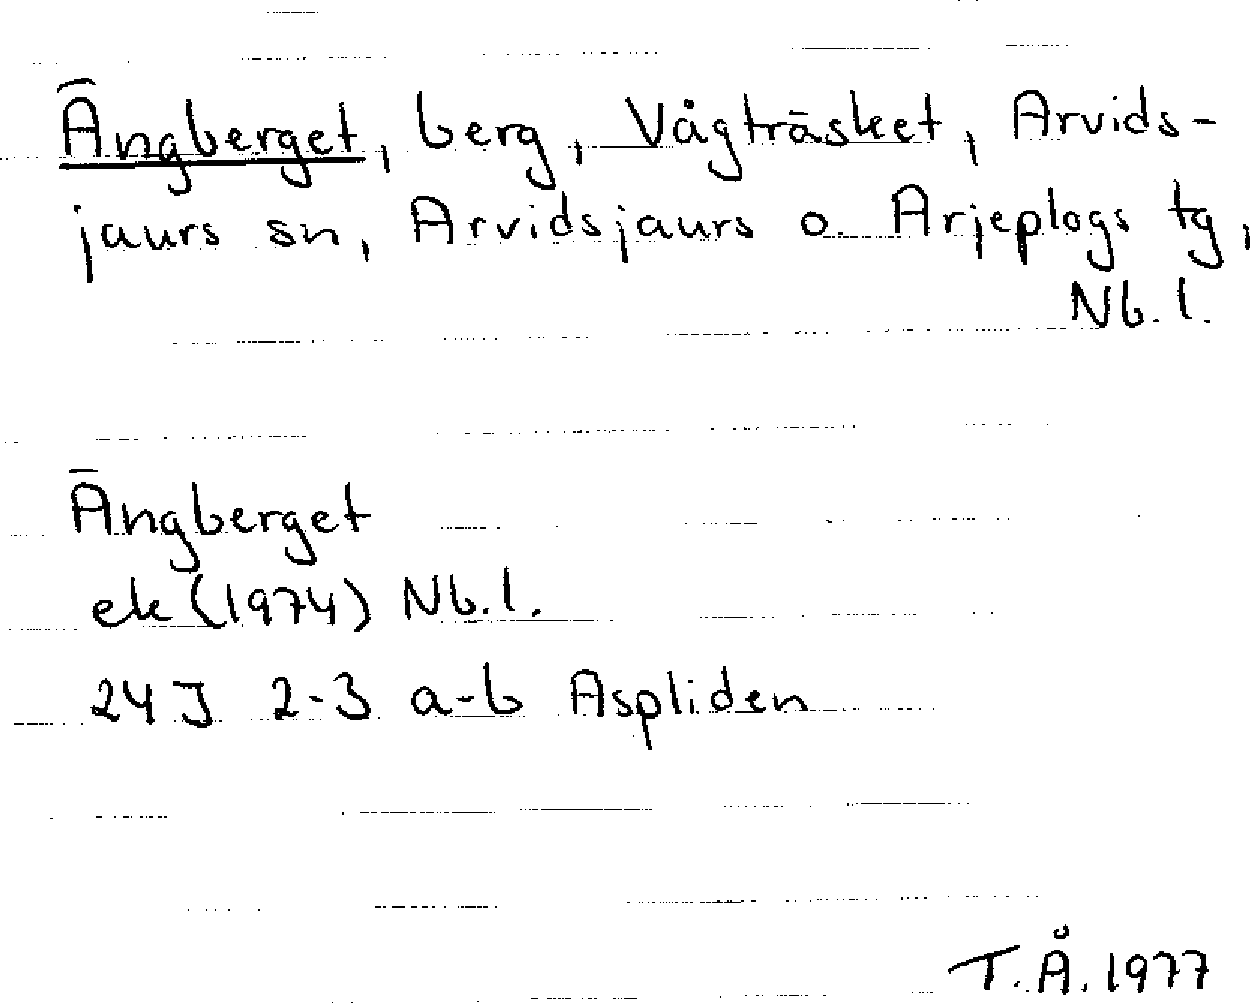 Ängberget, berg, Vågträsket, Arvids-
jaurs sn, Arvidsjaurs o. Arjeplogs tg,
Nb. l.
Ängberget
ek (1974) Nb. l.
24 J 2-3 a-b Aspliden
T. Å. 1977